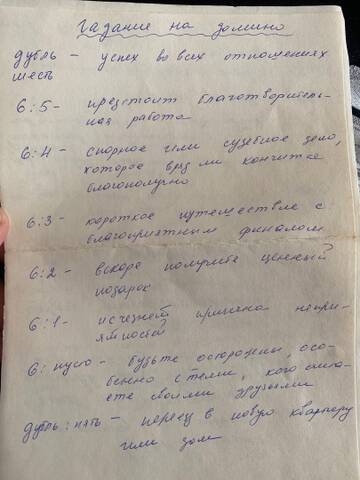 Гадание на домино
дубль – успех во всех отношениях
шесть
6:5 – предстоит благотворитель-
ная работа
6:4 – спорное или судебное дело,
которое вряд ли кончится
благополучно
6:3 – короткое путешествие с
благоприятным финалом
6:2 – вскоре получите ценный
подарок
6:1 – исчезнет причина непри-
ятностей
6: пусто – будьте осторожны, осо-
бенно с теми, кого счита-
ете своими друзьями
дубль: пять – переезд в новую квартиру
или дом